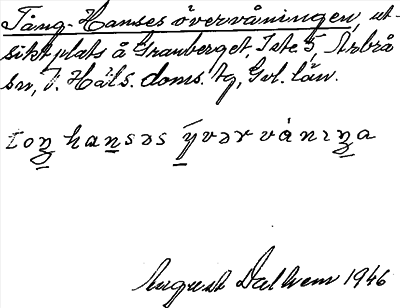 Tång-Hanses övervåningen, ut-
siktplats å Granberget, Iste 5, Arbrå
sn, V. Häls. doms. tg, Gvl. län.
toŋ hansəs ÿvər vániŋa
August Dalhem 1946